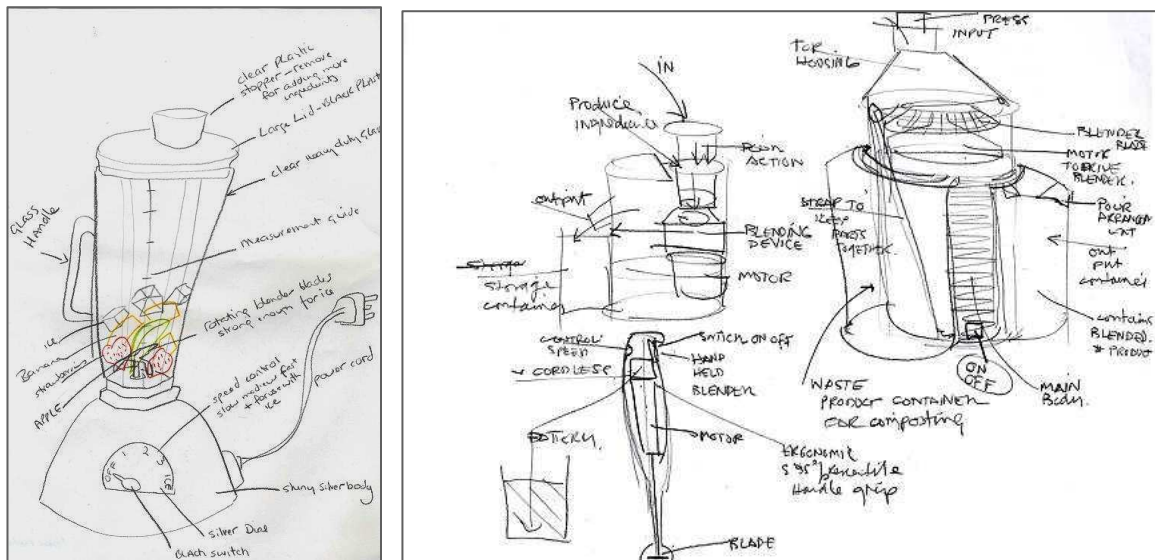 clear plastic
stopper - remove
for adding more
ingredients
Large Lid - BLACK PLASTIC
clear heavy duty glass
GLASS
HANDLE
measurement guide
rotating blender blades
strong enough for ice
ice
Banana
strawberries
APPLE
speed control
slow medium fast
+ force with
ice
power cord
OFF 1 2 3 ICE
shiny silver body
silver Dial
BLACK switch
IN
Produce
PUSH
ACTION
output
BLENDING
DEVICE
MOTOR
storage
storage
container
CONTROL
SPEED
CORDLESS
SWITCH ON OFF
HAND
HELD
BLENDER
BATTERY
MOTOR
ERGONOMIC
5 95% percentile
Handle grip
BLADE
PRESS
INPUT
TOP
HOUSING
BLENDER
BLADE
MOTOR
TO DRIVE
BLENDER.
STRAP TO
KEEP
PARTS
TOGETHER.
POUR
out
put
container
contains
BLENDED
PRODUCT
WASTE
PRODUCT CONTAINER
FOR composting
ON
OFF
MAIN
BODY.